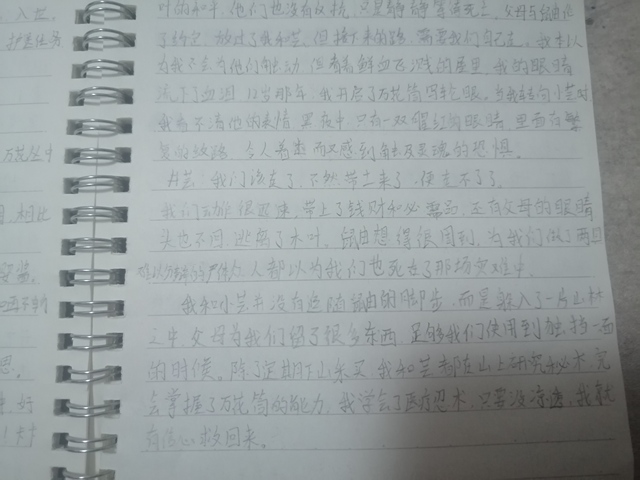 入益
护送任务
万花丛中
相比
好
叶的和平,他们也没有反抗,只是静静等待死亡。父母与鼬做
了约定,放过了我和芸,但接下来的路,需要我们自己走。我本以
为我不会为他们触动,但看着鲜血飞溅的屋里,我的眼睛
流下了血泪。12岁那年,我开启了万花筒写轮眼。当我转向小芸时
我看不清他的表情,黑夜中,只有一双猩红的眼睛,里面有繁
复的纹路,令人着迷而又感到触及灵魂的恐惧。
小芸,我们该走了,不然带土来了,便走不了了。
我们动作很迅速,带上了钱财和必需品,还有父母的眼睛
头也不回,逃离了木叶。鼬也想得很周到,为我们做了两具
可以仿真的尸体,人都以为我们也死在了那场灾难中。
我和小芸并没有追随鼬的脚步,而是躲入了一片山林
之中,父母为我们留了很多东西,足够我们使用到独挡一面
的时候。除了定期下山采买,我和芸都在山上研究秘术,完
全掌握了万花筒的能力,我学会了医疗忍术,只要没凉透,我就
有信心救回来。